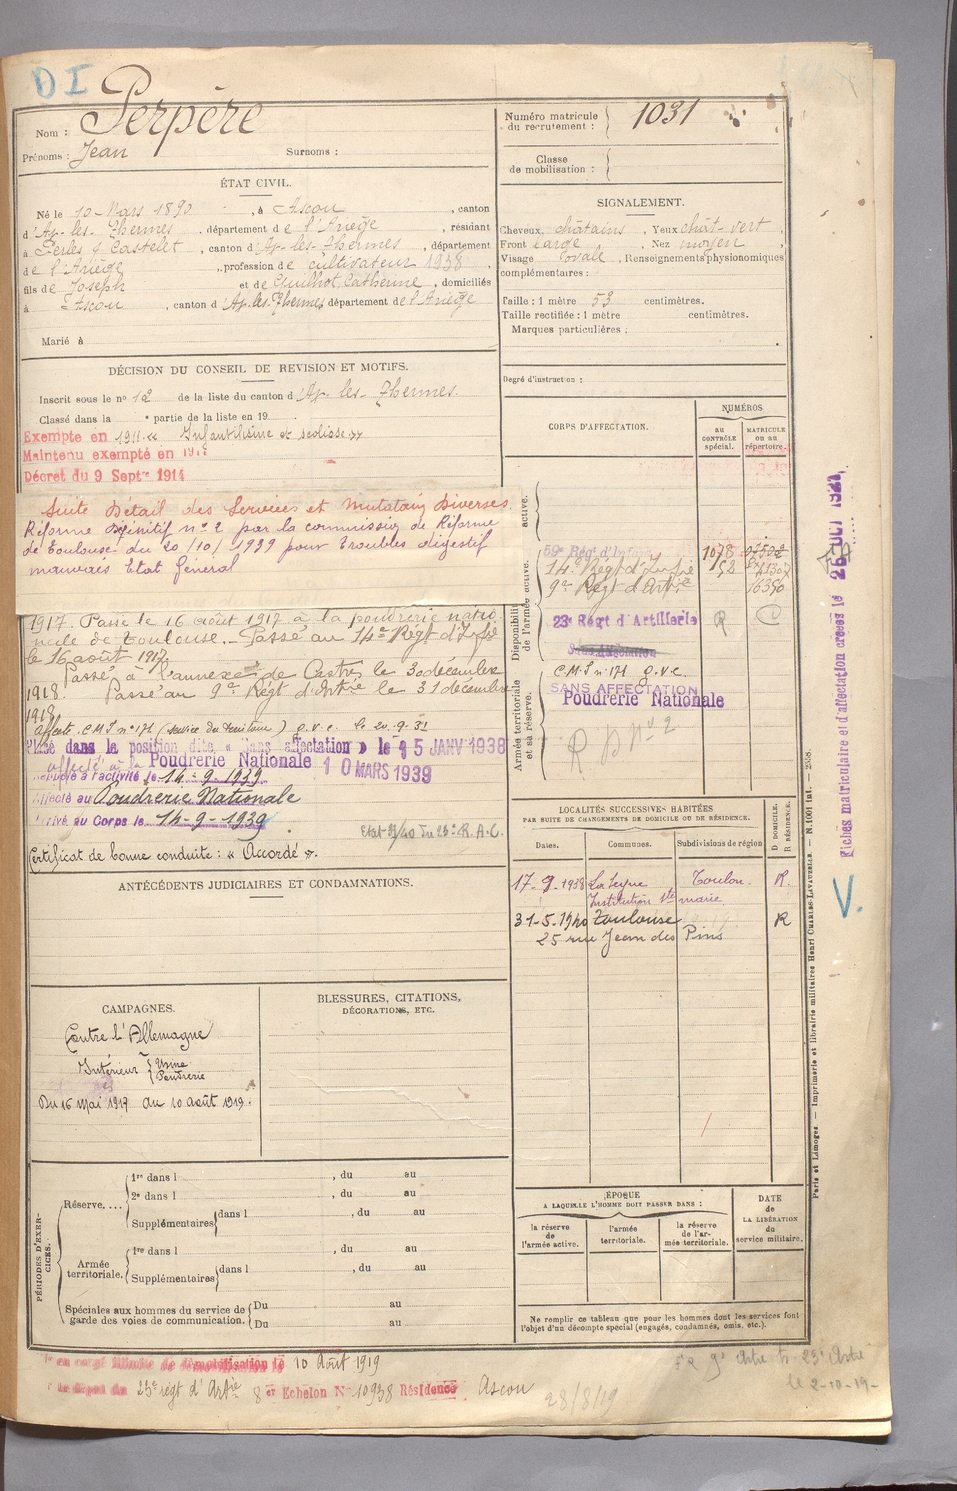 DI
Nom : Perpère
Prénoms : Jean Surnoms :
Numéro matricule du recrutement : 1031
Classe de mobilisation :
ÉTAT CIVIL.
Né le 10 Mars 1890, à Ascou, canton
d'Ax-les-Thermes, département de l'Ariège, résidant
à Perles & Castelet, canton d'Ax-les-Thermes, département
de l'Ariège, profession de cultivateur 1938,
fils de Joseph et de Guilhot, Catherine, domiciliés
à Ascou, canton d'Ax-les-Thermes département de l'Ariège
Marié à
SIGNALEMENT.
Cheveux châtains, Yeux chât-vert,
Front large, Nez moyen,
Visage ovale, Renseignements physionomiques
complémentaires :
Taille : 1 mètre 53 centimètres.
Taille rectifiée : 1 mètre centimètres.
Marques particulières :
Degré d'instruction :
DÉCISION DU CONSEIL DE REVISION ET MOTIFS.
Inscrit sous le nº 12 de la liste du canton d'Ax-les-Thermes.
Classé dans la e partie de la liste en 19 .
Exempté en 1911 « Infantilisme et scoliose »
Maintenu exempté en
Décret du 9 Septre 1914
Suite Détail des Services et Mutations Diverses
Réforme Définitif nº 2 par la commission de Réforme
de Toulouse du 20/10/1939 pour Troubles digestif
mauvais Etat Général
1917. Passé le 16 août 1917 à la poudrerie natio-
nale de Toulouse. Passé au 14e Régt d'Infie
le 16 août 1917
Passé à l'annexe de Castres le 30 décembre
1918. Passé au 9e Régt d'Artie le 31 décembre
1918
Affecté C.M.I. nº 171 (service du territoire) O.V.C. le 20-9-31
Placé dans la position dite « Sans affectation » le 15 JANV 1938
affecté à la Poudrerie Nationale 10 MARS 1939
Rappelé à l'activité le 14-9-1939
Affecté au Poudrerie Nationale
Arrivé au Corps le 14-9-1939
Etat 39/40 du 23e R.A.C.
Certificat de bonne conduite : « Accordé ».
CORPS D'AFFECTATION.
NUMÉROS
au contrôle spécial.
matricule ou au répertoire.
active.
Disponibilité de l'armée active.
59e Régt d'Infie 1078
14e Régt d'Infie 52
9e Régt d'Artie 16390
23e Régt d'Artillerie R C
Sans affectation
Armée territoriale et sa réserve.
C.M.I. nº 171 O.V.C.
SANS AFFECTATION
Poudrerie Nationale
R D Nº 2
LOCALITÉS SUCCESSIVES HABITÉES
PAR SUITE DE CHANGEMENTS DE DOMICILE OU DE RÉSIDENCE.
Dates. Communes. Subdivisions de région
D DOMICILE. R RÉSIDENCE.
17-9-1938 La Seyne Toulon. R.
Institution Ste marie
31-5-1940 Toulouse R
25 rue Jean des Pins
ANTÉCÉDENTS JUDICIAIRES ET CONDAMNATIONS.
CAMPAGNES.
Contre l'Allemagne
Intérieur { Usine
Poudrerie
Du 16 Mai 1917 au 10 août 1919.
BLESSURES, CITATIONS,
DÉCORATIONS, ETC.
PÉRIODES D'EXERCICES.
Réserve....
1re dans l , du au
2e dans l , du au
Supplémentaires dans l , du au
Armée territoriale.
1re dans l , du au
Supplémentaires dans l , du au
Spéciales aux hommes du service de garde des voies de communication.
Du au
Du au
ÉPOQUE
A LAQUELLE L'HOMME DOIT PASSER DANS :
la réserve de l'armée active.
l'armée territoriale.
la réserve de l'armée territoriale.
DATE de LA LIBÉRATION du service militaire.
Ne remplir ce tableau que pour les hommes dont les services font
l'objet d'un décompte spécial (engagés, condamnés, omis, etc.).
en congé illimité de démobilisation le 10 Août 1919
23e régt d'Artie 8e Echelon Nº 10938 Résidence Ascou
28/8/19
9e Artie 23e Artie
le 2-10-19-
Fiches matriculaire et d'affectation créées le 26 OCT 1921
V.
Paris et Limoges. — Imprimerie et librairie militaires Henri CHARLES-LAVAUZELLE. — N. 1001 int. — 2558.